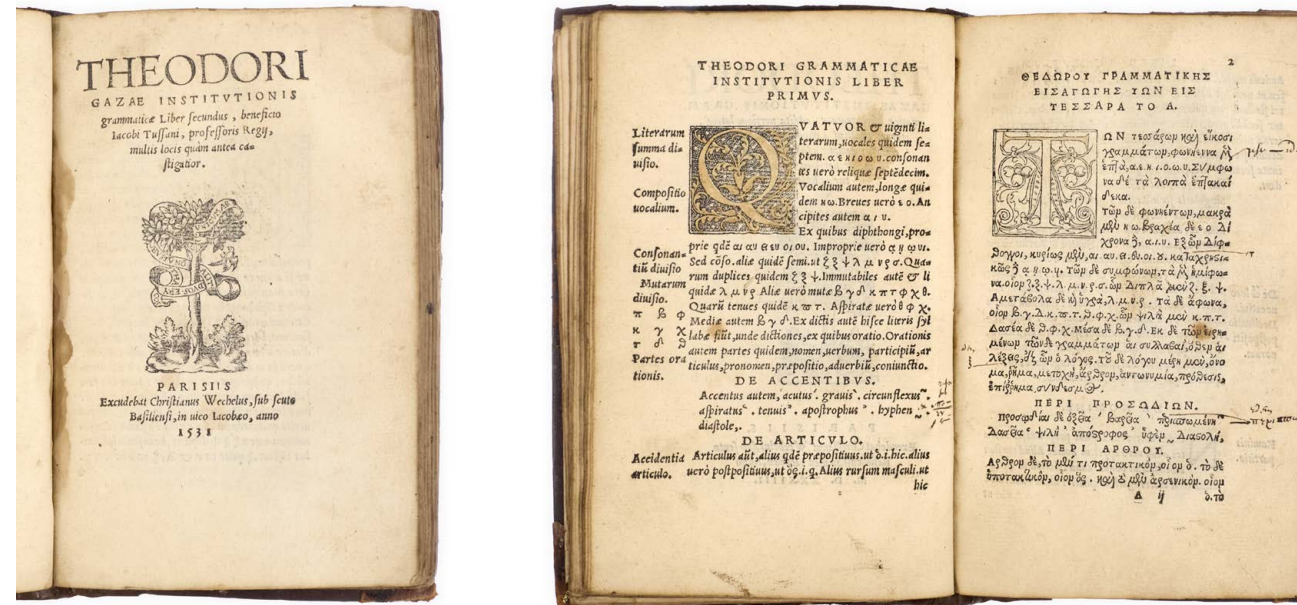 THEODORI
GAZAE INSTITVTIONIS
grammaticæ Liber secundus, beneficio
Iacobi Tussani, professoris Regij,
multis locis quàm antea ca-
stigatior.
PARISIIS
Excudebat Christianus Wechelus, sub scuto
Basiliensi, in uico Iacobæo, anno
1531
THEODORI GRAMMATICAE
INSTITVTIONIS LIBER
PRIMVS.
Literarum
summa di-
uisio.
Compositio
uocalium.
Consonan-
tiũ diuisio
Mutarum
diuisio.
π β φ
κ γ χ
τ δ θ
Partes ora
tionis.
QVATVOR & uiginti li=
terarum, uocales quidem se=
ptem. α ε η ι ο ω υ. consonan
tes uerò reliquæ septẽdecim.
Vocalium autem, longæ qui=
dem η ω. Breues uerò ε ο. An
cipites autem α ι υ.
Ex quibus diphthongi, pro=
prie qdẽ αι αυ ει ευ οι ου. Improprie uerò ᾳ ῃ ῳ υι.
Sed cõso. aliæ quidẽ semi. ut ζ ξ ψ λ μ ν ρ σ. Qua=
rum duplices quidem ζ ξ ψ. Immutabiles autẽ & li
quidæ λ μ ν ρ Aliæ uerò mutæ β γ δ κ π τ φ χ θ.
Quarũ tenues quidẽ κ π τ. Aspiratæ uerò θ φ χ.
Mediæ autem β γ δ. Ex dictis autẽ hisce literis syl
labæ fiũt, unde dictiones, ex quibus oratio. Orationis
autem partes quidem, nomen, uerbum, participiũ, ar
ticulus, pronomen, præpositio, aduerbiũ, coniunctio.
DE ACCENTIBVS.
Accentus autem, acutus ́ grauis ̀ circunflexus ͂
aspiratus ʽ tenuis ʼ apostrophus ’ hyphen
diastole,.
DE ARTICVLO.
Accidentia
articulo.
Articulus aũt, alius qdẽ præpositiuus. ut ὁ. i. hic. alius
uerò postpositiuus, ut ὅς. i. q. Alius rursum masculi. ut
hic
2
ΘΕΔΩΡΟΥ ΓΡΑΜΜΑΤΙΚΗΣ
ΕΙΣΑΓΩΓΗΣ ΤΩΝ ΕΙΣ
ΤΕΣΣΑΡΑ ΤΟ Α.
ΤΩΝ τεσσάρων καὶ εἴκοσι
γραμμάτων, φωνήεντα μὲν
ἑπτὰ, α. ε. η. ι. ο. ω. υ. Σύμφω
να δὲ τὰ λοιπὰ ἑπτακαί
δεκα.
τῶν δὲ φωνηέντων, μακρὰ
μὲν η ω. βραχέα δὲ ε ο Δί
χρονα δὲ, α. ι. υ. Ἐξ ὧν δίφ-
θογγοι, κυρίως μὲν, αι. αυ. ει. ευ. οι. ου. καταχρηστι-
κῶς δὲ ᾳ ῃ ῳ. υι. τῶν δὲ συμφώνων, τὰ μὲν ἡμίφω-
να. οἷον ζ. ξ. ψ. λ. μ. ν. ρ. σ. ὧν διπλᾶ μὲν ζ. ξ. ψ.
Ἀμετάβολα δὲ καὶ ὑγρὰ, λ. μ. ν. ρ. τὰ δὲ ἄφωνα,
οἷον β. γ. δ. κ. π. τ. θ. φ. χ. ὧν ψιλὰ μὲν κ. π. τ.
Δασέα δὲ θ. φ. χ. Μέσα δὲ β. γ. δ. Ἐκ δὲ τῶν εἰρη-
μένων τῶνδε γραμμάτων αἱ συλλαβαί, ὅθεν αἱ
λέξεις, ἐξ ὧν ὁ λόγος. τοῦ δὲ λόγου μέρη μὲν, ὄνο
μα, ῥῆμα, μετοχὴ, ἄρθρον, ἀντωνυμία, πρόθεσις,
ἐπίρρημα, σύνδεσμος.
ΠΕΡΙ ΠΡΟΣΩΔΙΩΝ.
Προσῳδίαι δὲ ὀξεῖα ́ βαρεῖα ̀ περισπωμένη ͂
Δασεῖα ʽ ψιλὴ ʼ ἀπόστροφος ’ ὑφὲν Διαστολὴ,
ΠΕΡΙ ΑΡΘΡΟΥ.
Ἄρθρον δὲ, τὸ μέν τι προτακτικὸν, οἷον ὁ. τὸ δὲ
ὑποτακτικὸν, οἷον ὅς. καὶ ὃ μὲν ἀρσενικὸν. οἷον
A ij
ὁ. τὸ